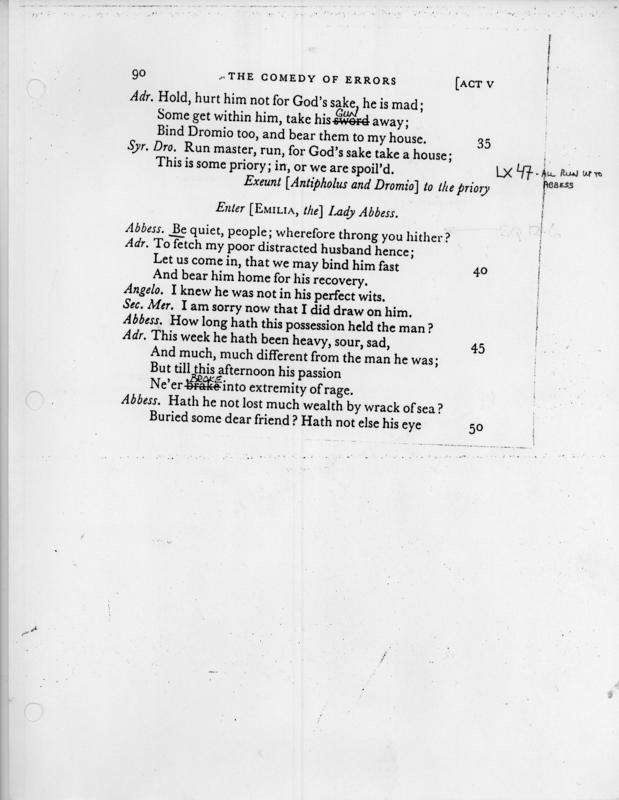 90 THE COMEDY OF ERRORS [ACT V
Adr. Hold, hurt him not for God's sake, he is mad;
GUN
Some get within him, take his sword away;
Bind Dromio too, and bear them to my house. 35
Syr. Dro. Run master, run, for God's sake take a house;
This is some priory; in, or we are spoil'd.
LX 47 - ALL RUN UP TO
ABBESS
Exeunt [Antipholus and Dromio] to the priory
Enter [EMILIA, the] Lady Abbess.
Abbess. Be quiet, people; wherefore throng you hither?
Adr. To fetch my poor distracted husband hence;
Let us come in, that we may bind him fast 40
And bear him home for his recovery.
Angelo. I knew he was not in his perfect wits.
Sec. Mer. I am sorry now that I did draw on him.
Abbess. How long hath this possession held the man?
Adr. This week he hath been heavy, sour, sad, 45
And much, much different from the man he was;
But till this afternoon his passion
BROKE
Ne'er brake into extremity of rage.
Abbess. Hath he not lost much wealth by wrack of sea?
Buried some dear friend? Hath not else his eye 50